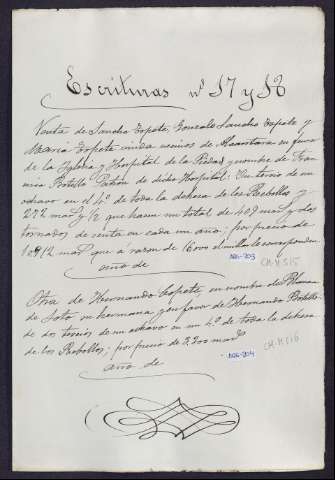 Escrituras nº 17 y 18
Venta de Sancho Topete, Gonzalo Sancho Topete y
María Topete viuda vecinos de Alcantara en favor
de la Iglesia y Hospital de la Piedad y nombre de Fran
Patrón de dicho Hospital: Un tercio de un
ochavo en el 4º de toda la dehesa de los Rebollos y
272 mas y ½ que hacen un total de 409 mas y dos
tornados de renta en cada un año: por precio de
mas que á razon de el millar le corresponden
año de
AG6-203
CM-H 515
Otra de Hernando Topete, en nombre de Blanca
de Soto su hermana y en favor de Hernando
de dos tercios de un ochavo en un 4º de toda la dehesa
de los Rebollos; por precio de 3200 mas
año de
AG6-204
CM-H 516